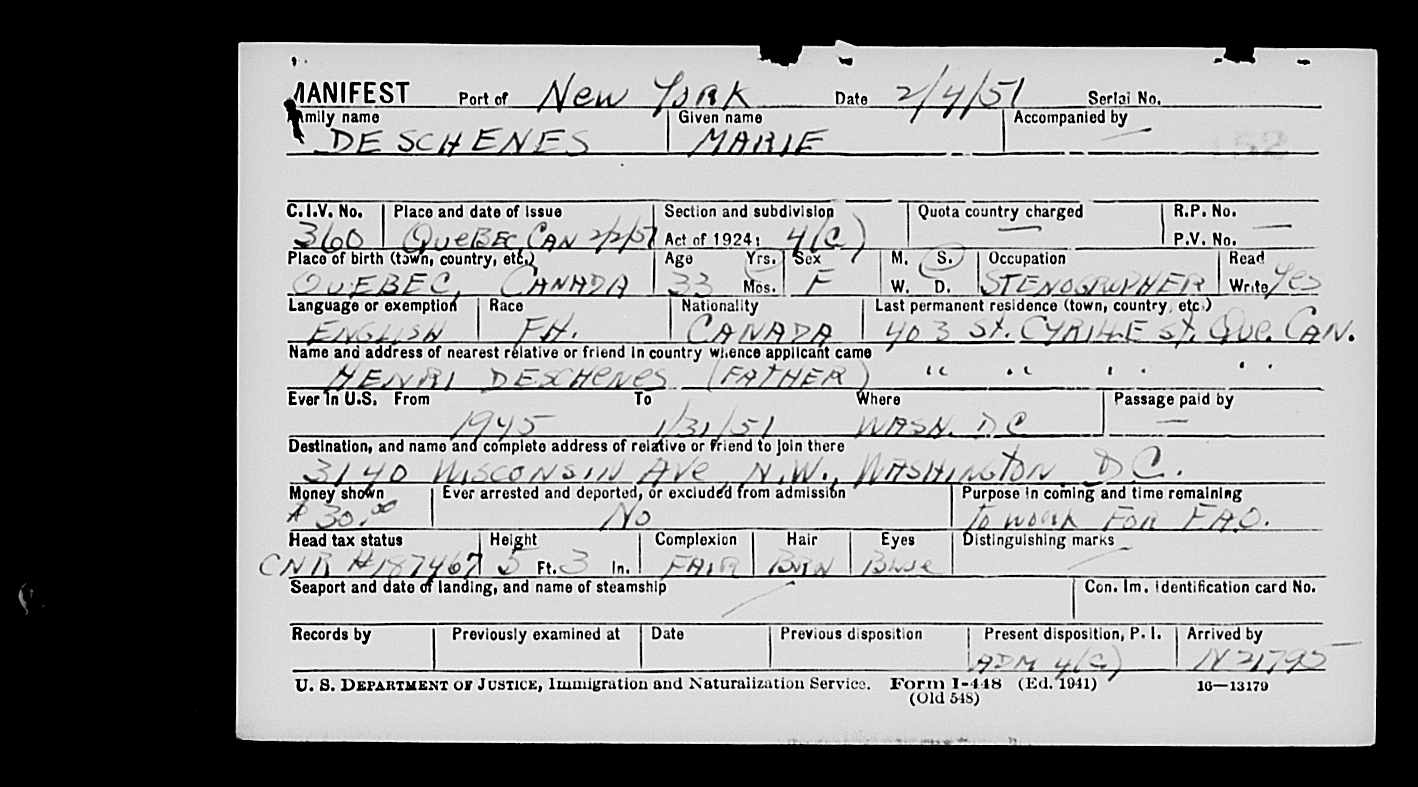 MANIFEST Port of New York Date 2/4/51 Serial No.
Family name Given name Accompanied by
DESCHENES MARIE —
C.I.V. No. Place and date of issue Section and subdivision Quota country charged R.P. No.
360 QUEBEC, CAN 2/2/51 Act of 1924: 4(C) — P.V. No. —
Place of birth (town, country, etc.) Age Yrs. Sex M. S. Occupation Read
QUEBEC, CANADA 33 Mos. F W. D. STENOGRAPHER Write Yes
Language or exemption Race Nationality Last permanent residence (town, country, etc.)
ENGLISH FH. CANADA 403 St. CYRILLE St. Que. CAN.
Name and address of nearest relative or friend in country whence applicant came
HENRI DESCHENES (FATHER) " " " "
Ever in U.S. From To Where Passage paid by
1945 1/31/51 WASH. DC —
Destination, and name and complete address of relative or friend to join there
3140 WISCONSIN AVe, N.W., WASHINGTON DC.
Money shown Ever arrested and deported, or excluded from admission Purpose in coming and time remaining
$30.00 No To work For F.A.O.
Head tax status Height Complexion Hair Eyes Distinguishing marks
CNR #187467 5 Ft. 3 In. FAIR BRN Blue —
Seaport and date of landing, and name of steamship Con. Im. Identification card No.
Records by Previously examined at Date Previous disposition Present disposition, P. I. Arrived by
ADM 4(C) N21795
U. S. DEPARTMENT OF JUSTICE, Immigration and Naturalization Service. Form I-448 (Ed. 1941) 16—13179
(Old 548)